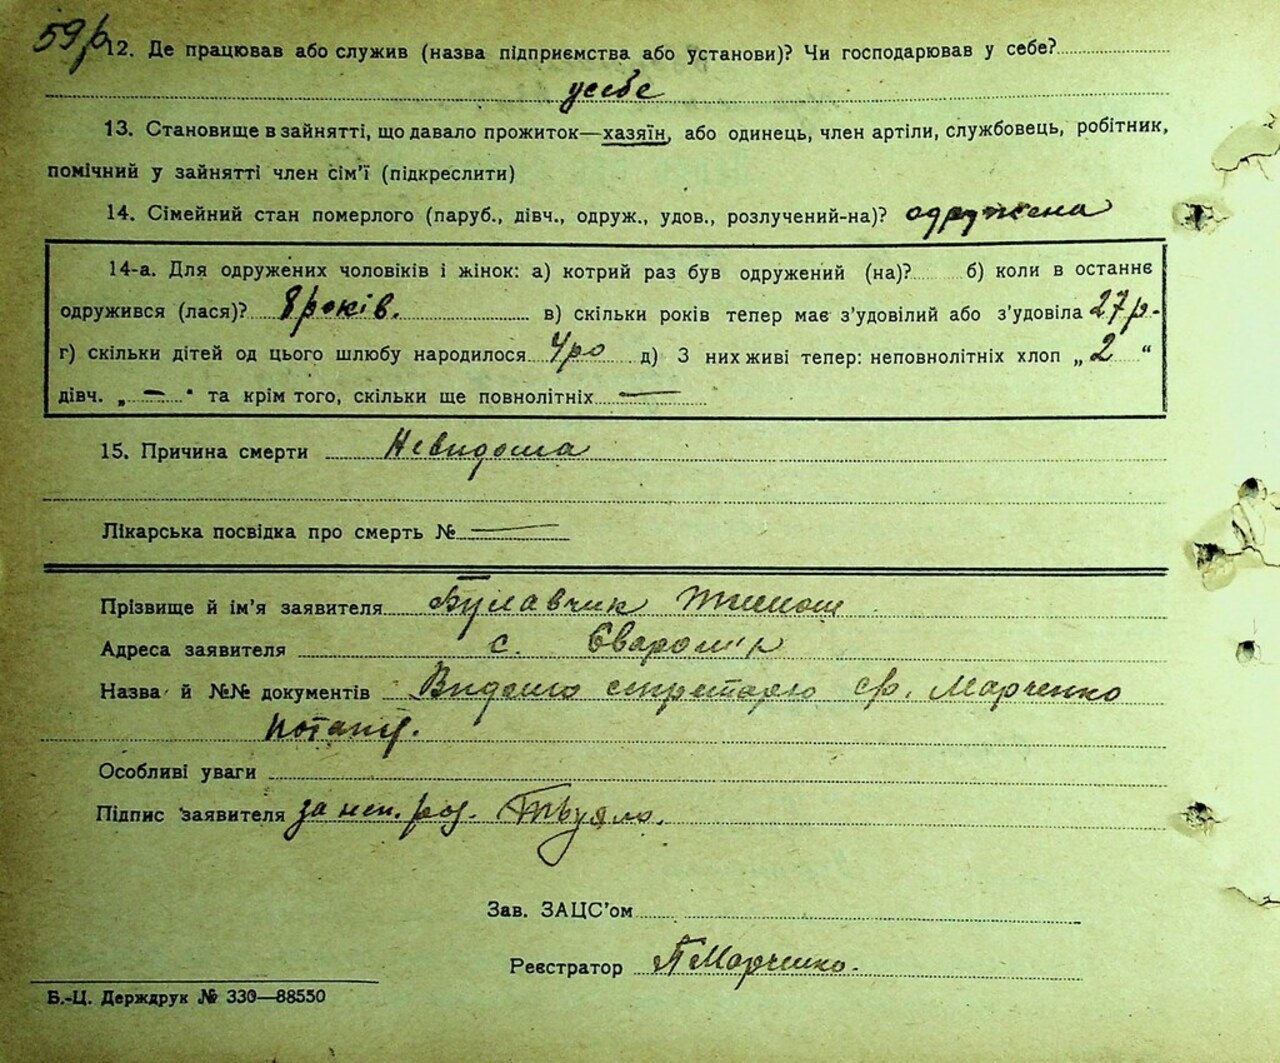 59р
12. Де працював або служив (назва підприємства або установи)? Чи господарював у себе?
усебе
13. Становище в зайнятті, що давало прожиток—хазяїн, або одинець, член артілі, службовець, робітник,
помічний у зайнятті член сім'ї (підкреслити)
14. Сімейний стан померлого (паруб., дівч., одруж., удов., розлучений-на)? одружена
14-а. Для одружених чоловіків і жінок: а) котрий раз був одружений (на)? б) коли в останнє
одружився (лася)? 8 років. в) скільки років тепер має з'удовілий або з'удовіла 27 р.
г) скільки дітей од цього шлюбу народилося 4ро д) З них живі тепер: неповнолітніх хлоп „ 2 “
дівч. „ — “ та крім того, скільки ще повнолітніх —
15. Причина смерти Невидома
Лікарська посвідка про смерть № —
Прізвище й ім'я заявителя Булавчик Тимош
Адреса заявителя с.
Назва й №№ документів Видомо секретарю с/р. Марченко
Потапу.
Особливі уваги
Підпис заявителя за неп. роз.
Зав. ЗАЦС'ом
Реєстратор П Марченко.
Б.-Ц. Держдрук № 330—88550